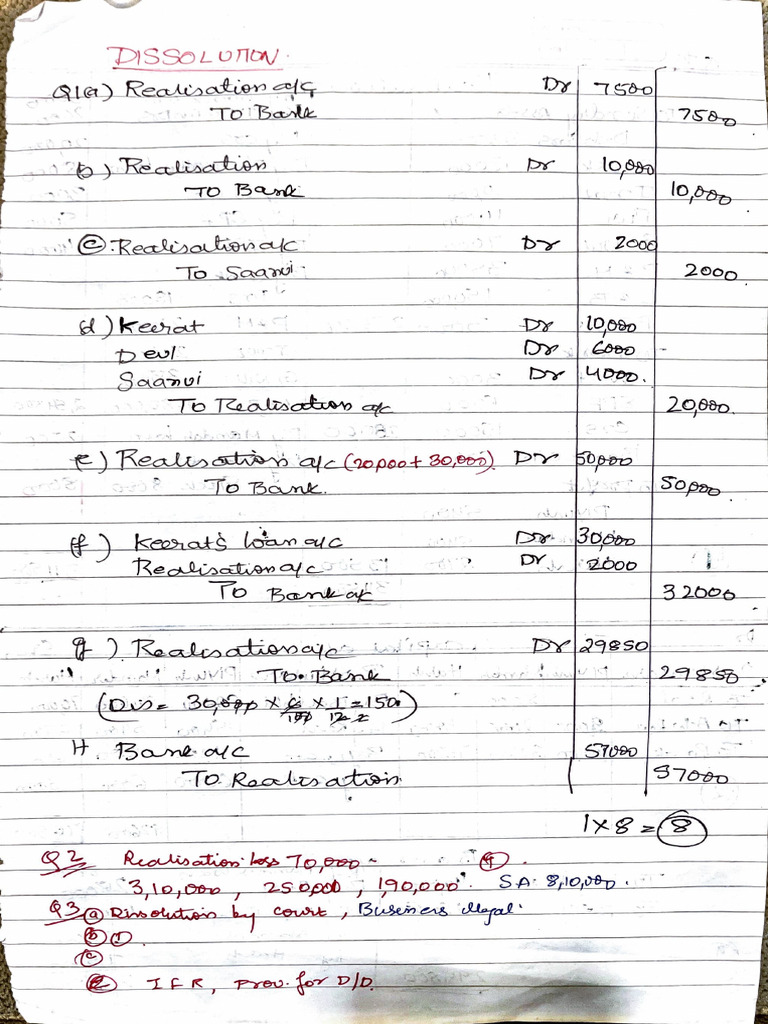 DISSOLUTION.
Q1(a) Realisation a/c Dr 7500
To Bank 7500
b) Realisation Dr 10,000
To Bank 10,000
(c) Realisation a/c Dr 2000
To Saanvi 2000
d) Keerat Dr 10,000
Devl Dr 6000
Saanvi Dr 4000.
To Realisation a/c 20,000.
e) Realisation a/c (20,000 + 30,000) Dr 50,000
To Bank. 50,000.
(f) Keerat's loan a/c Dr 30,000
Realisation a/c Dr 2000
To Bank a/c 32000
g). Realisation a/c Dr 29850
To. Bank 29850
(Dis = 30,000 × 6/100 × 1/12 = 150)
H. Bank a/c 57000
To Realisation 57000
1 × 8 = 8
Q2 Realisation loss 70,000 -
3,10,000, 250,000, 1,90,000. S.A. 8,10,000.
Q3 (a) Dissolution by court, Business illegal.
(b) (1).
(c)
I F R, Prov. for D/D.